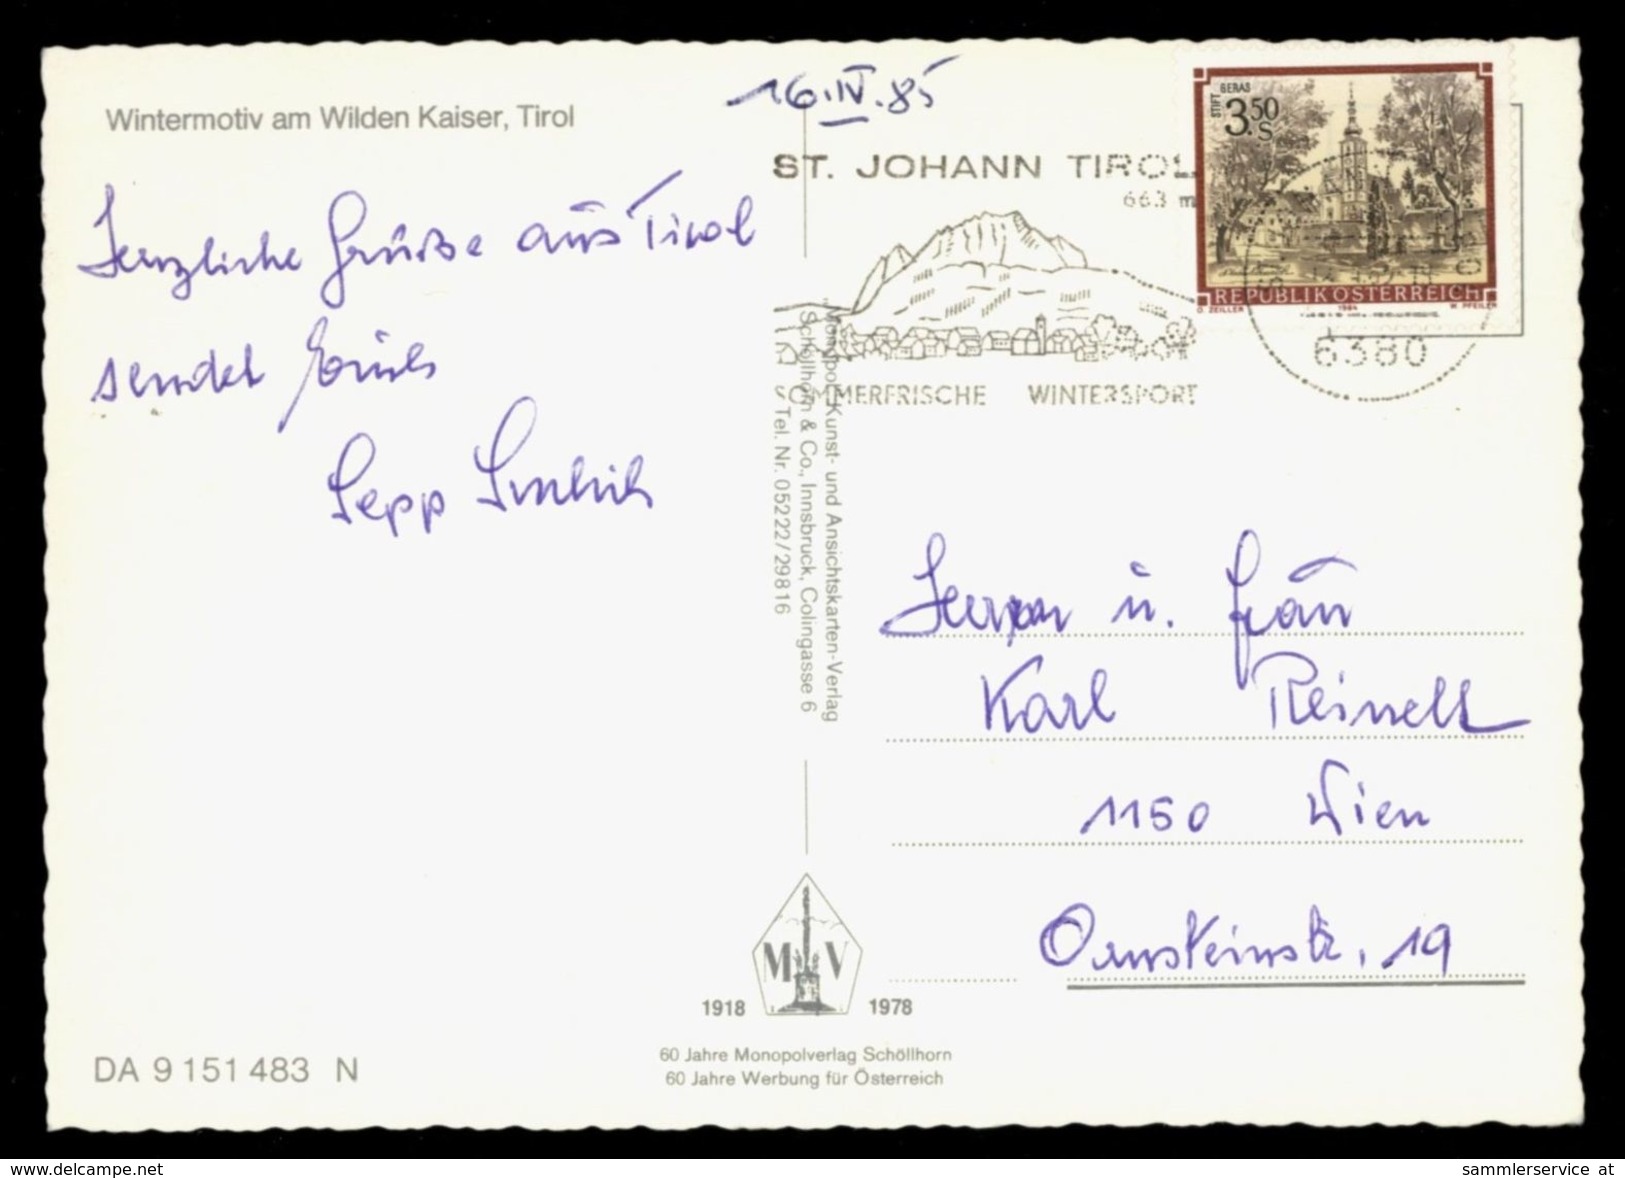 Wintermotiv am Wilden Kaiser, Tirol
16.IV.85
Herzliche Grüße aus Tirol
sendet Euch
Sepp
ST. JOHANN TIROL
663 m
SOMMERFRISCHE WINTERSPORT
6380
STIFT GERAS
3.50
S
REPUBLIK ÖSTERREICH
O. ZEILLER 1984 W. PFEILER
"Monopol" Kunst- und Ansichtskarten-Verlag
Schöllhorn & Co., Innsbruck, Colingasse 6
Tel. Nr. 05222/29816
Herrn u. Frau
Karl Reinelt
1150 Wien
19
M V
1918 1978
60 Jahre Monopolverlag Schöllhorn
60 Jahre Werbung für Österreich
DA 9 151 483 N
www.delcampe.net
sammlerservice at